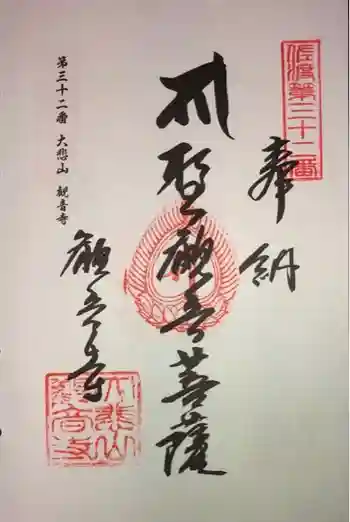 佐渡第三十二番
奉納
聖観音菩薩
観音寺
第三十二番 大悲山 観音寺
大悲山観音寺